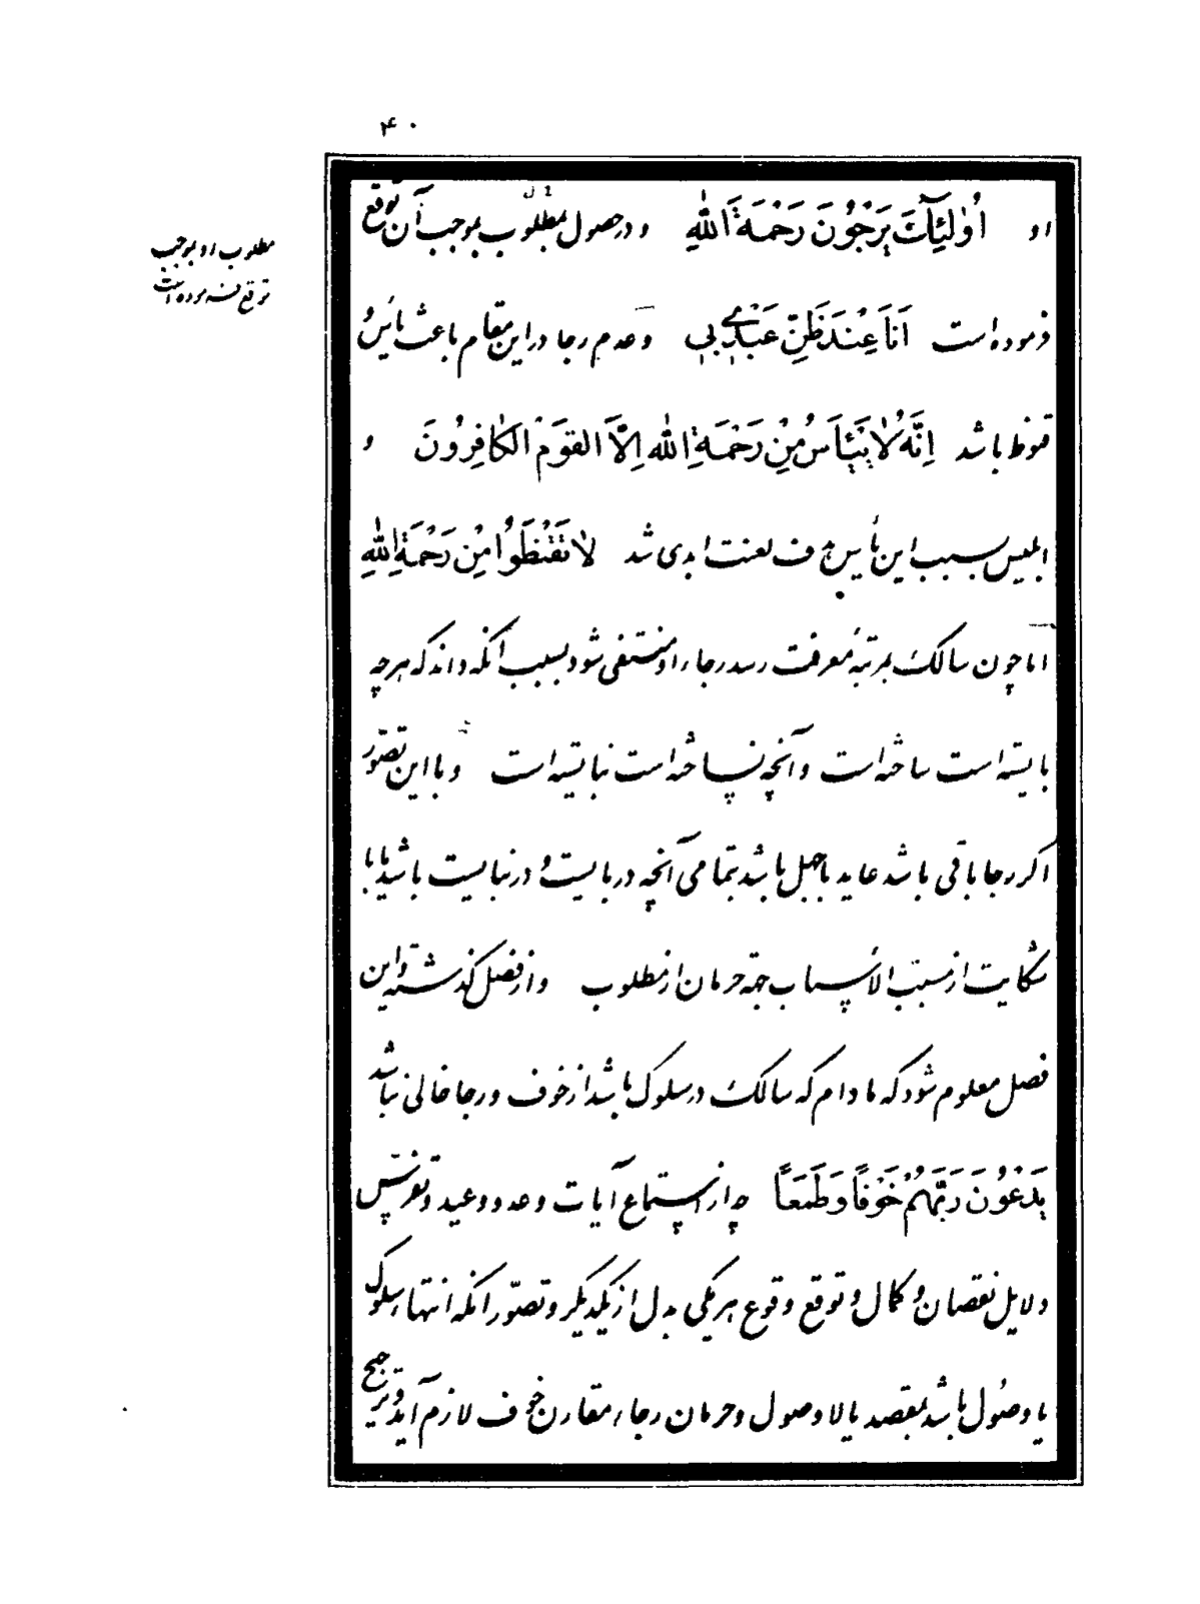 ۴۰
او اُولٰئِكَ يَرْجُونَ رَحْمَةَ اللّٰهِ و در حصول مطلوب بموجب آن توقع
فرموده است اَنَا عِنْدَ ظَنِّ عَبْدِي بِي و عدم رجا در این مقام باعث یأس و
قنوط باشد اِنَّهُ لَا يَيْأَسُ مِنْ رَحْمَةِ اللّٰهِ اِلَّا الْقَوْمُ الْكَافِرُونَ و
ابلیس بسبب این یأس هدف لعنت ابدی شد لَا تَقْنَطُوا مِنْ رَحْمَةِ اللّٰهِ
اما چون سالک بمرتبهٔ معرفت رسد رجاء او منتفی شود بسبب آنکه داند که هرچه
بایسته است ساخته است و آنچه نساخته است نبایسته است و با این تصوّر
اگر رجا باقی باشد عاید با جهل باشد بتمامی آنچه دربایست و درنبایست باشد یا با
شکایت از مسبّب الأسباب جهة حرمان از مطلوب و از فصل گذشته و این
فصل معلوم شود که مادام که سالک در سلوک باشد از خوف و رجا خالی نباشد
يَدْعُونَ رَبَّهُمْ خَوْفًا وَطَمَعًا چه از استماع آیات وعد و وعید و تفرّس
دلایل نقصان و کمال و توقع وقوع هر یکی بدل از یکدیگر و تصوّر آنکه انتهاء سلوک
یا وصول باشد بمقصد یا لاوصول و حرمان رجاء مقارن خوف لازم آید و ترجیح
مطلوب او بموجب
توقع فرموده است